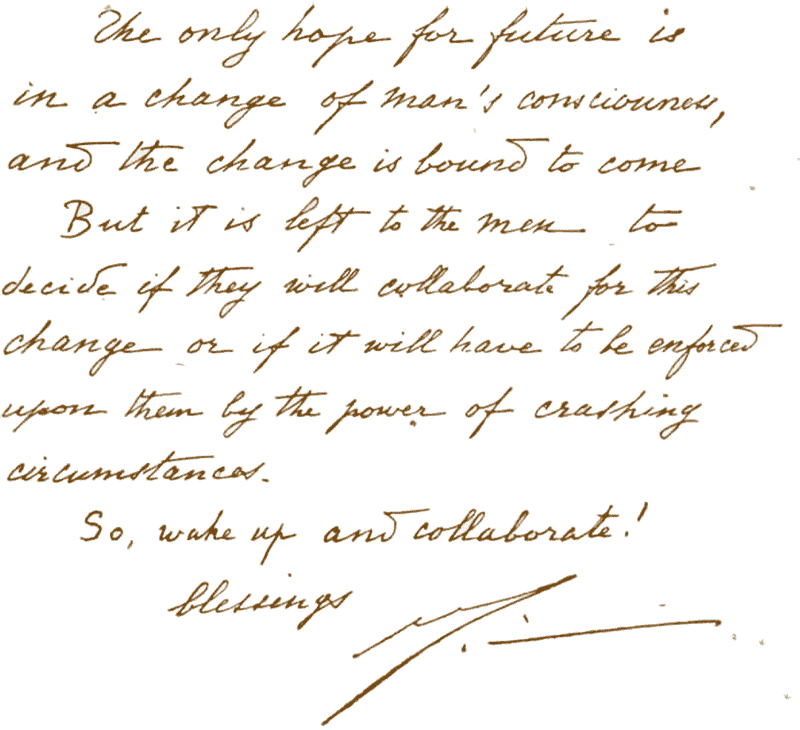 The only hope for future is
in a change of man's consciouness,
and the change is bound to come
But it is left to the men to
decide if they will collaborate for this
change or if it will have to be enforced
upon them by the power of crashing
circumstances.
So, wake up and collaborate!
blessings